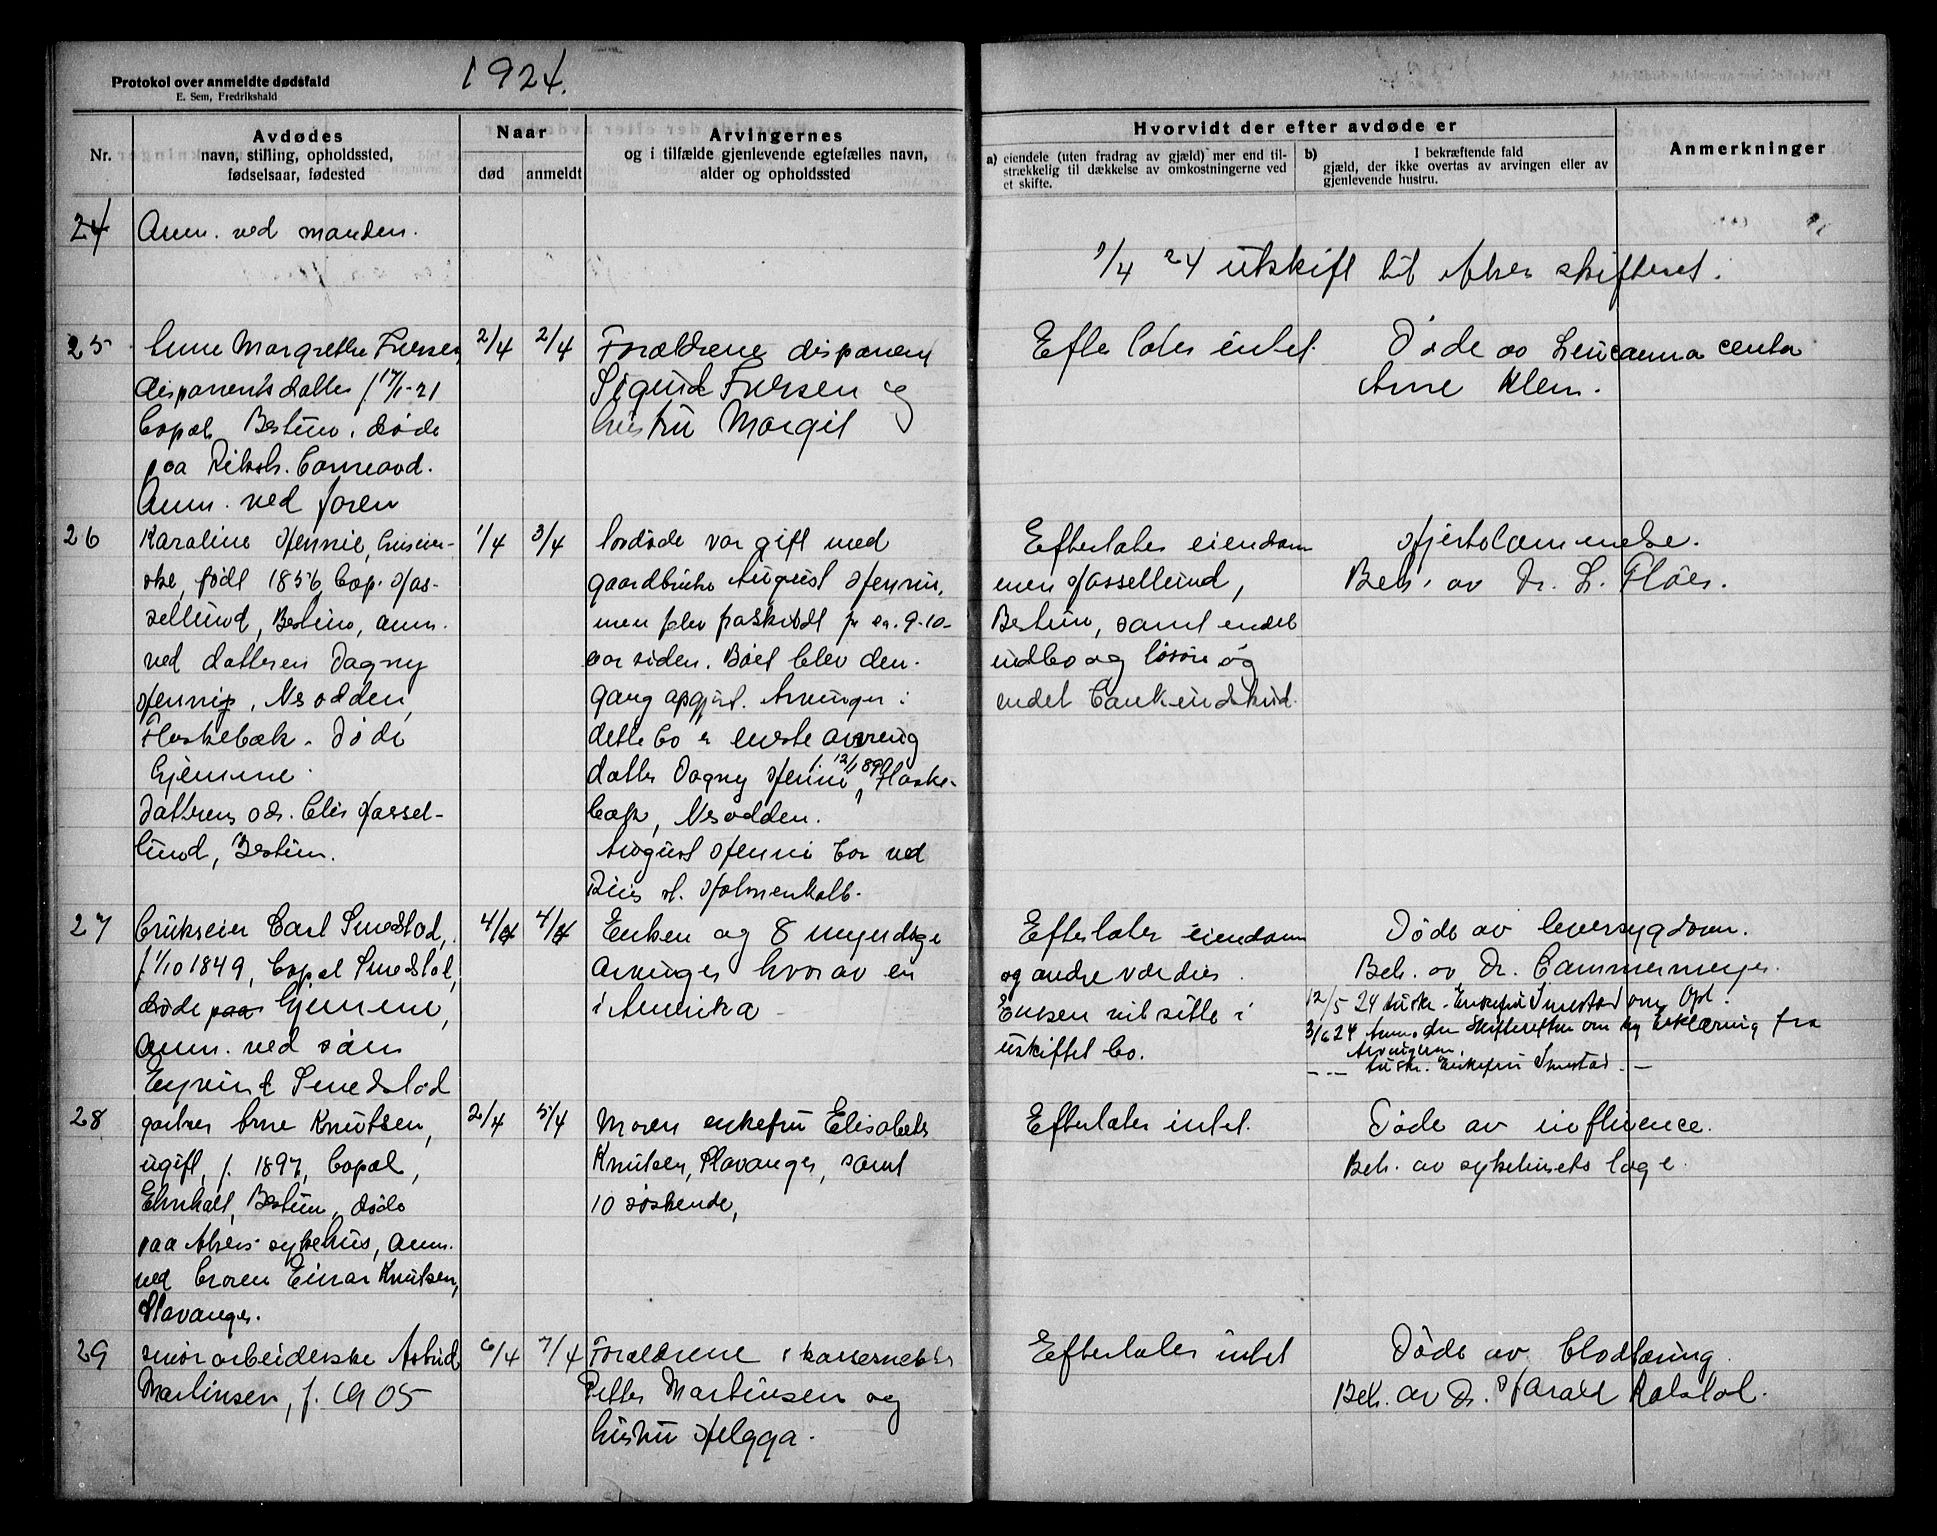 Protokol over anmeldte dødsfald
E. Sem, Fredrikshald
1924.
Nr.
Avdødes
navn, stilling, opholdssted,
fødselsaar, fødested
Naar
død
anmeldt
Arvingernes
og i tilfælde gjenlevende egtefælles navn,
alder og opholdssted
Hvorvidt der efter avdøde er
a) eiendele (uten fradrag av gjæld) mer end til-
strækkelig til dækkelse av omkostningerne ved
et skifte.
b) I bekræftende fald
gjæld, der ikke overtas av arvingen eller av
gjenlevende hustru.
Anmerkninger
24
Anm. ved manden.
1/4 24 utskift til Aker skifteret.
25
Anne Margrethe Iversen
disponents datter f. 17/1-21
bopæl Bestun, døde
paa Riksh. barneavd.
Anm. ved faren
2/4
2/4
Forældrene disponent
Sigurd Iversen og
hustru Margit
Efterlater intet.
Døde av Leucaema
Arne Klem.
26
Karaline Hennie, huseier-
ske, født 1856, bop. Has-
sellund, Bestun, anm.
ved datteren Dagny
Hennig, Nesodden,
Flaskebæk. Døde
hjemme.
Datterens adr. blir Hassel-
lund, Bestun.
1/4
3/4
Avdøde var gift med
gaardbruker August Hennie,
men blev fraskildt for ca. 9-10
aar siden. Boet blev den-
gang opgjort. Arvinger i
dette bo er eneste arving
datter Dagny Hennie, Flaske-
bæk, Nesodden.
August Hennie bor ved
Riis st. Holmenkolb.
Efterlater eiendom
men Hassellund,
Bestun, samt endel
indbo og løsøre og
endel bankindskud.
Hjertelammelse.
Beh. av Dr. L. Fløer.
27
brukseier Carl Smedstad,
f. 1/10 1849, bopæl Smedstad,
døde paa hjemme,
Anm. ved søn
Eyvind Smedstad
4/4
4/4
Enken og 8 myndige
Arvinger hvorav en
i Amerika
Efterlater eiendom
og andre værdier.
Enken vil sitte i
uskiftet bo.
Døde av leversygdom.
Beh. av Dr. Cammermeyer.
12/5 24 tilskr. Enkefru Smestad om Opl.
3/6 24 Anm. der Skifteretten om ny Erklæring fra
Arvingerne.
- - - tilskr. Enkefru Smestad. -
28
gartner Arne Knutsen,
ugift, f. 1897, bopæl,
Elmholt, Bestun, døde
paa Akers sykehus, anm.
ved broren Einar Knutsen,
Stavanger.
2/4
5/4
Moren enkefru Elisabeth
Knutsen, Stavanger, samt
10 søskende,
Efterlater intet.
Døde av influence.
Beh. av sykehusets læge.
29
smørarbeiderske Astrid
Martinsen, f. 1905
6/4
7/4
Forældrene
Petter Martinsen og
hustru Helgga.
Efterlater intet
Døde av blodtæring.
Beh. av Dr. Harald Natstad.